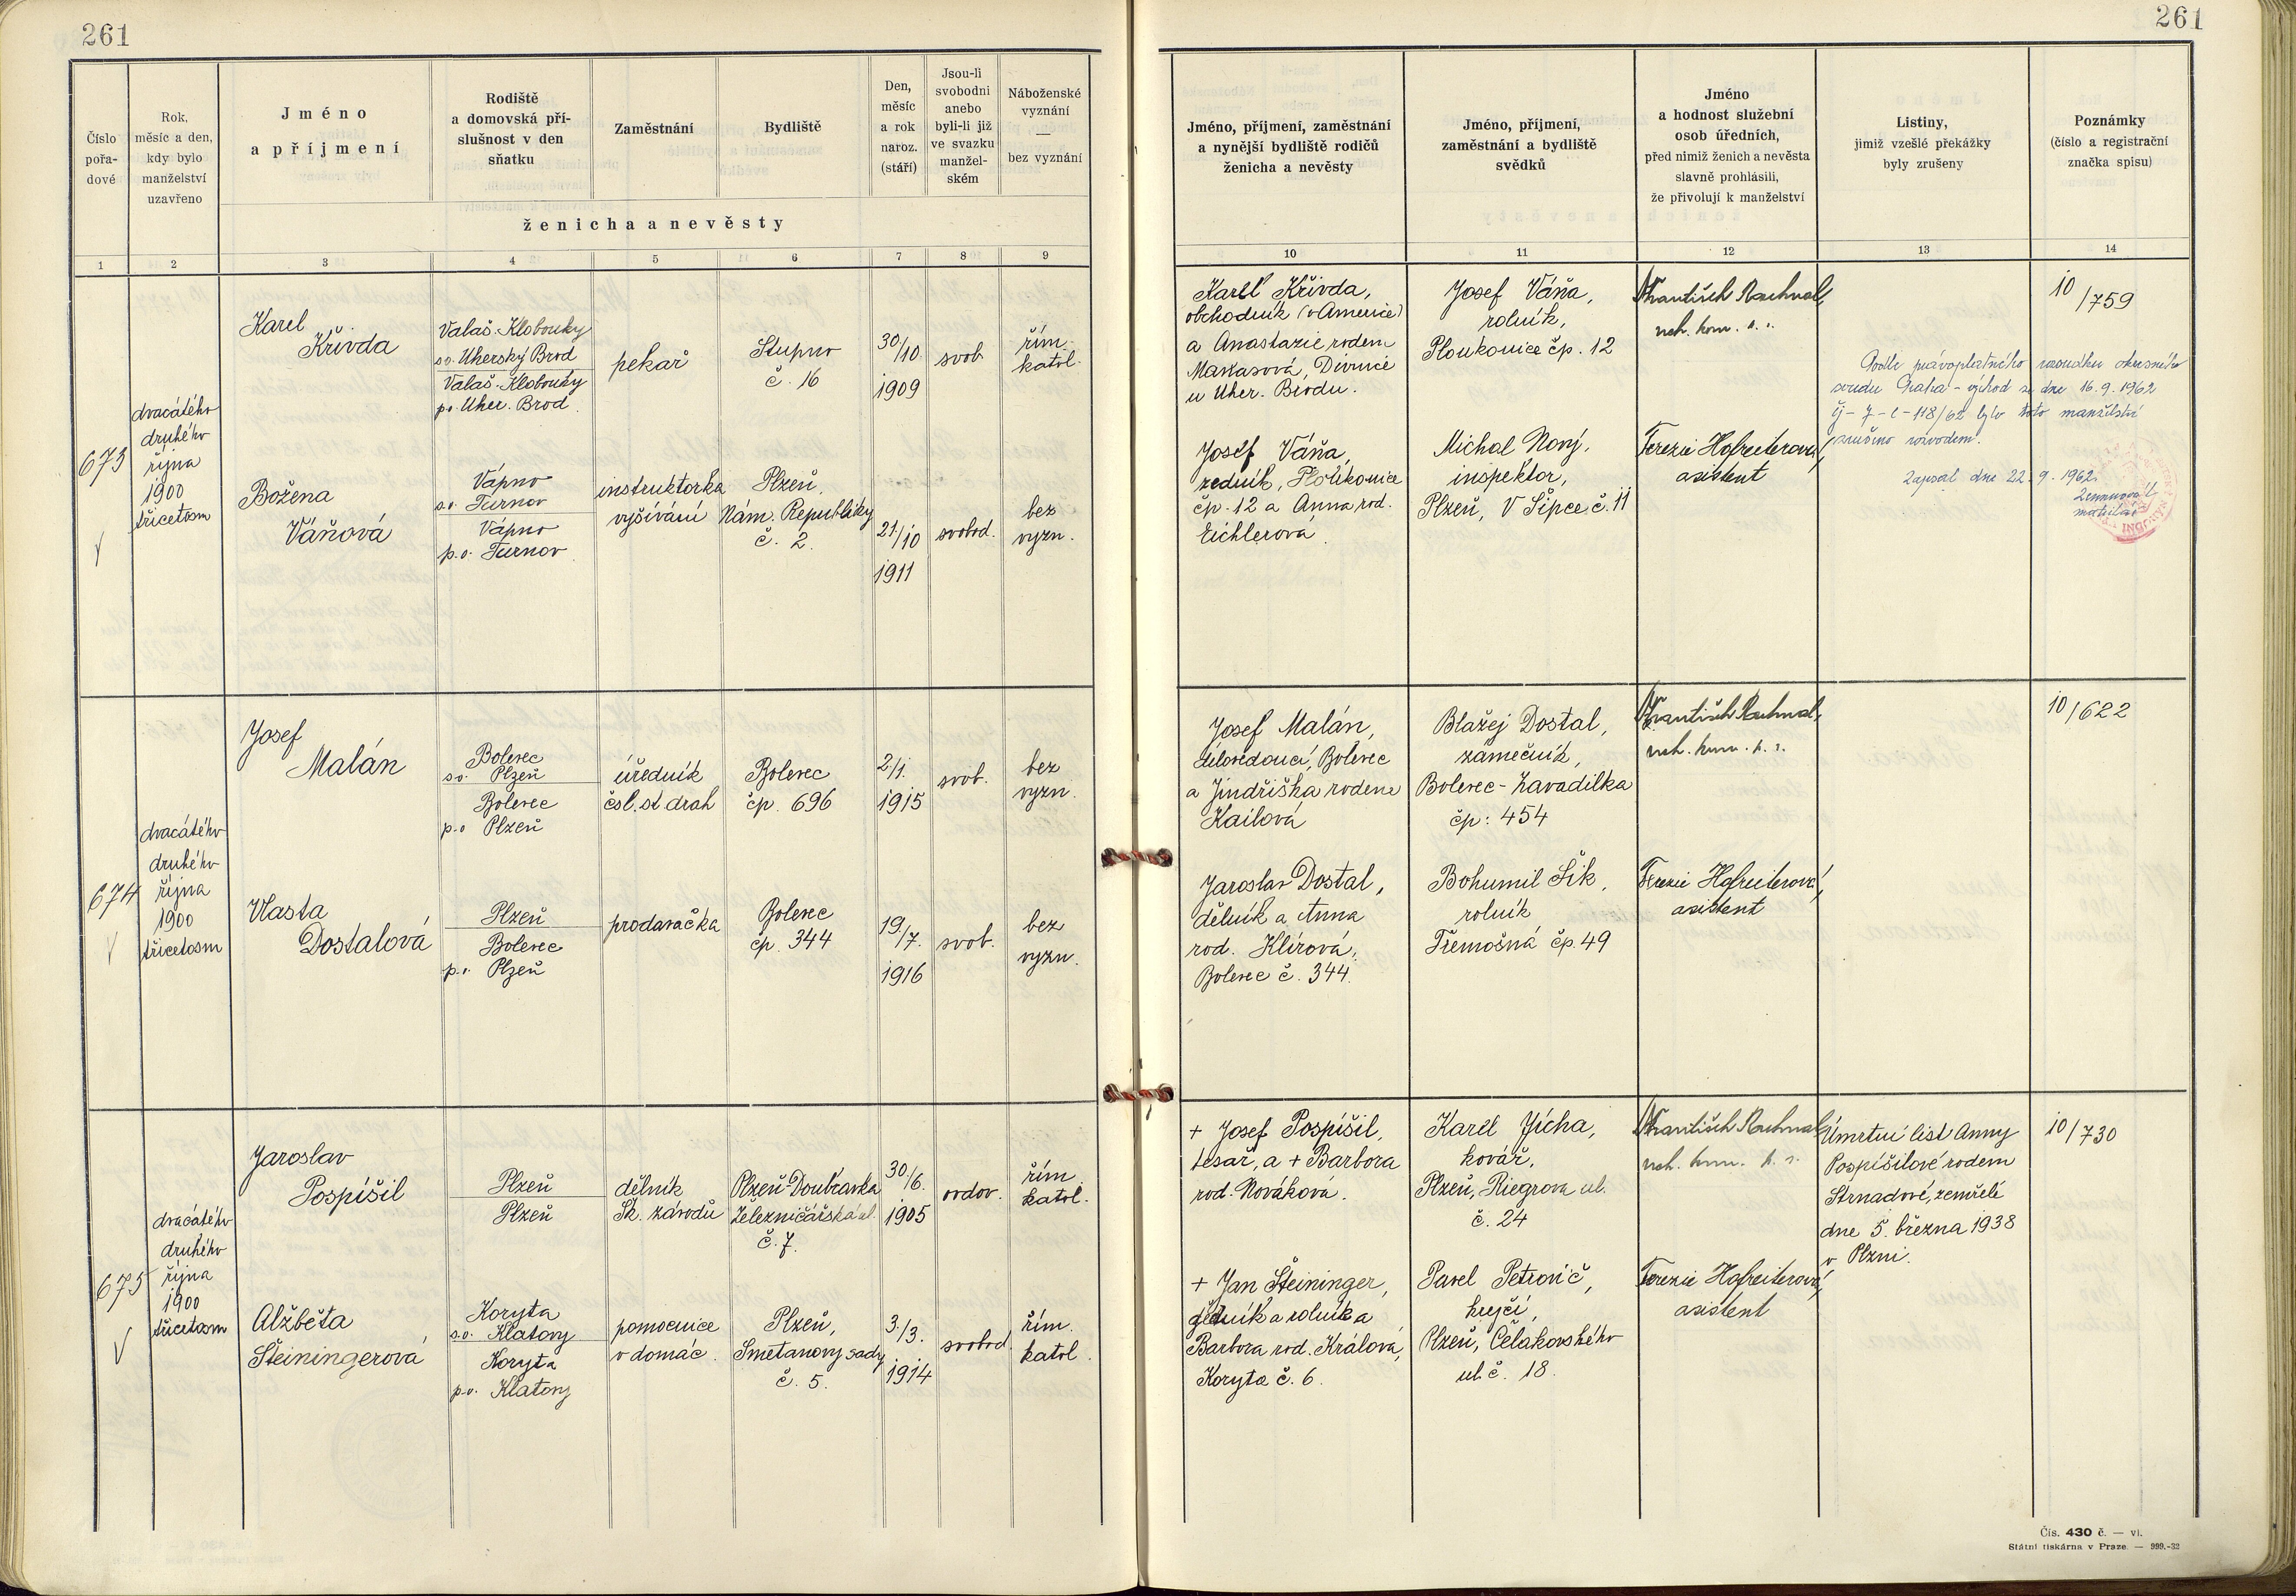 261
261
Číslo
pořa-
dové
Rok,
měsíc a den,
kdy bylo
manželství
uzavřeno
Jméno
a příjmení
Rodiště
a domovská pří-
slušnost v den
sňatku
Zaměstnání
Bydliště
Den,
měsíc
a rok
naroz.
(stáří)
Jsou-li
svobodni
anebo
byli-li již
ve svazku
manžel-
ském
Náboženské
vyznání
—
bez vyznání
ženicha a nevěsty
1 2 3 4 5 6 7 8 9
Jméno, příjmení, zaměstnání
a nynější bydliště rodičů
ženicha a nevěsty
Jméno, příjmení,
zaměstnání a bydliště
svědků
Jméno
a hodnost služební
osob úředních,
před nimiž ženich a nevěsta
slavně prohlásili,
že přivolují k manželství
Listiny,
jimiž vzešlé překážky
byly zrušeny
Poznámky
(číslo a registrační
značka spisu)
10 11 12 13 14
673
dvacátého
druhého
října
1900
třicetosm
Karel
Křivda
Valaš. Klobouky
s.o. Uherský Brod
Valaš. Klobouky
p.o. Uher. Brod.
pekař
Stupno
č. 16
30/10.
1909
svob.
řím.
katol.
Božena
Váňová
Vápno
s.o. Turnov
Vápno
p.o. Turnov.
instruktorka
vyšívání
Plzeň,
Nám. Republiky
č. 2.
21/10
1911
svobod.
bez
vyzn.
Karel Křivda,
obchodník (v Americe)
a Anastazie rodem
Maňasová, Divnice
u Uher. Brodu.
Josef Váňa,
zedník, Ploukonice
čp. 12 a Anna rod.
Eichlerová.
Josef Váňa,
rolník,
Ploukonice čp. 12
Michal Nový,
inspektor,
Plzeň, V Šipce č. 11
František
Terezie Hofreiterová,
asistent
Podle právoplatného rozsudku okresního
soudu Praha - východ ze dne 16. 9. 1962
bylo toto manželství
zrušeno rozvodem.
Zapsal dne 22. 9. 1962.
10/759
674
dvacátého
druhého
října
1900
třicetosm
Josef
Malán
Bolevec
s.o. Plzeň
Bolevec
p.o Plzeň
úředník
čsl. st. drah
Bolevec
čp. 696
2/1.
1915
svob.
bez
vyzn.
Vlasta
Dostalová
Plzeň
Bolevec
p.o. Plzeň
prodavačka
Bolevec
čp. 344
19./7.
1916
svob.
bez
vyzn.
Josef Malán,
dílovedoucí, Bolevec
a Jindřiška rodene
Kailová
Jaroslav Dostal,
dělník a Anna
rod. Klírová,
Bolevec č. 344.
Blažej Dostal,
zámečník,
Bolevec - Zavadilka
čp: 454
Bohumil Šik,
rolník
Třemošná čp. 49
František
Terezie Hofreiterová,
asistent
10/622
675
dvacátého
druhého
října
1900
třicetosm
Jaroslav
Pospíšil
Plzeň
Plzeň
dělník
Šk. závodů
Plzeň-Doubravka
Železničářská ul.
č. 7.
30/6.
1905
ovdov.
řím.
katol.
Alžběta
Šteiningerová
Koryta
s.o. Klatovy
Koryta
p.o. Klatovy
pomocnice
v domác.
Plzeň,
Smetanovy sady
č. 5.
3./3.
1914
svobod.
řím.
katol.
+ Josef Pospíšil,
tesař, a + Barbora
rod. Nováková.
+ Jan Šteininger,
dělník a rolník a
Barbora rod. Králová,
Koryta č. 6.
Karel Jícha,
kovář,
Plzeň, Riegrova ul.
č. 24
Pavel Petrovič,
krejčí,
Plzeň, Čelakovského
ul. č. 18.
František
Terezie Hofreiterová,
asistent
Úmrtní list Anny
Pospíšilové rodem
Strnadové, zemřelé
dne 5. března 1938
v Plzni.
10/730
Čís. 430 č. — vl.
Státní tiskárna v Praze. — 999.-32